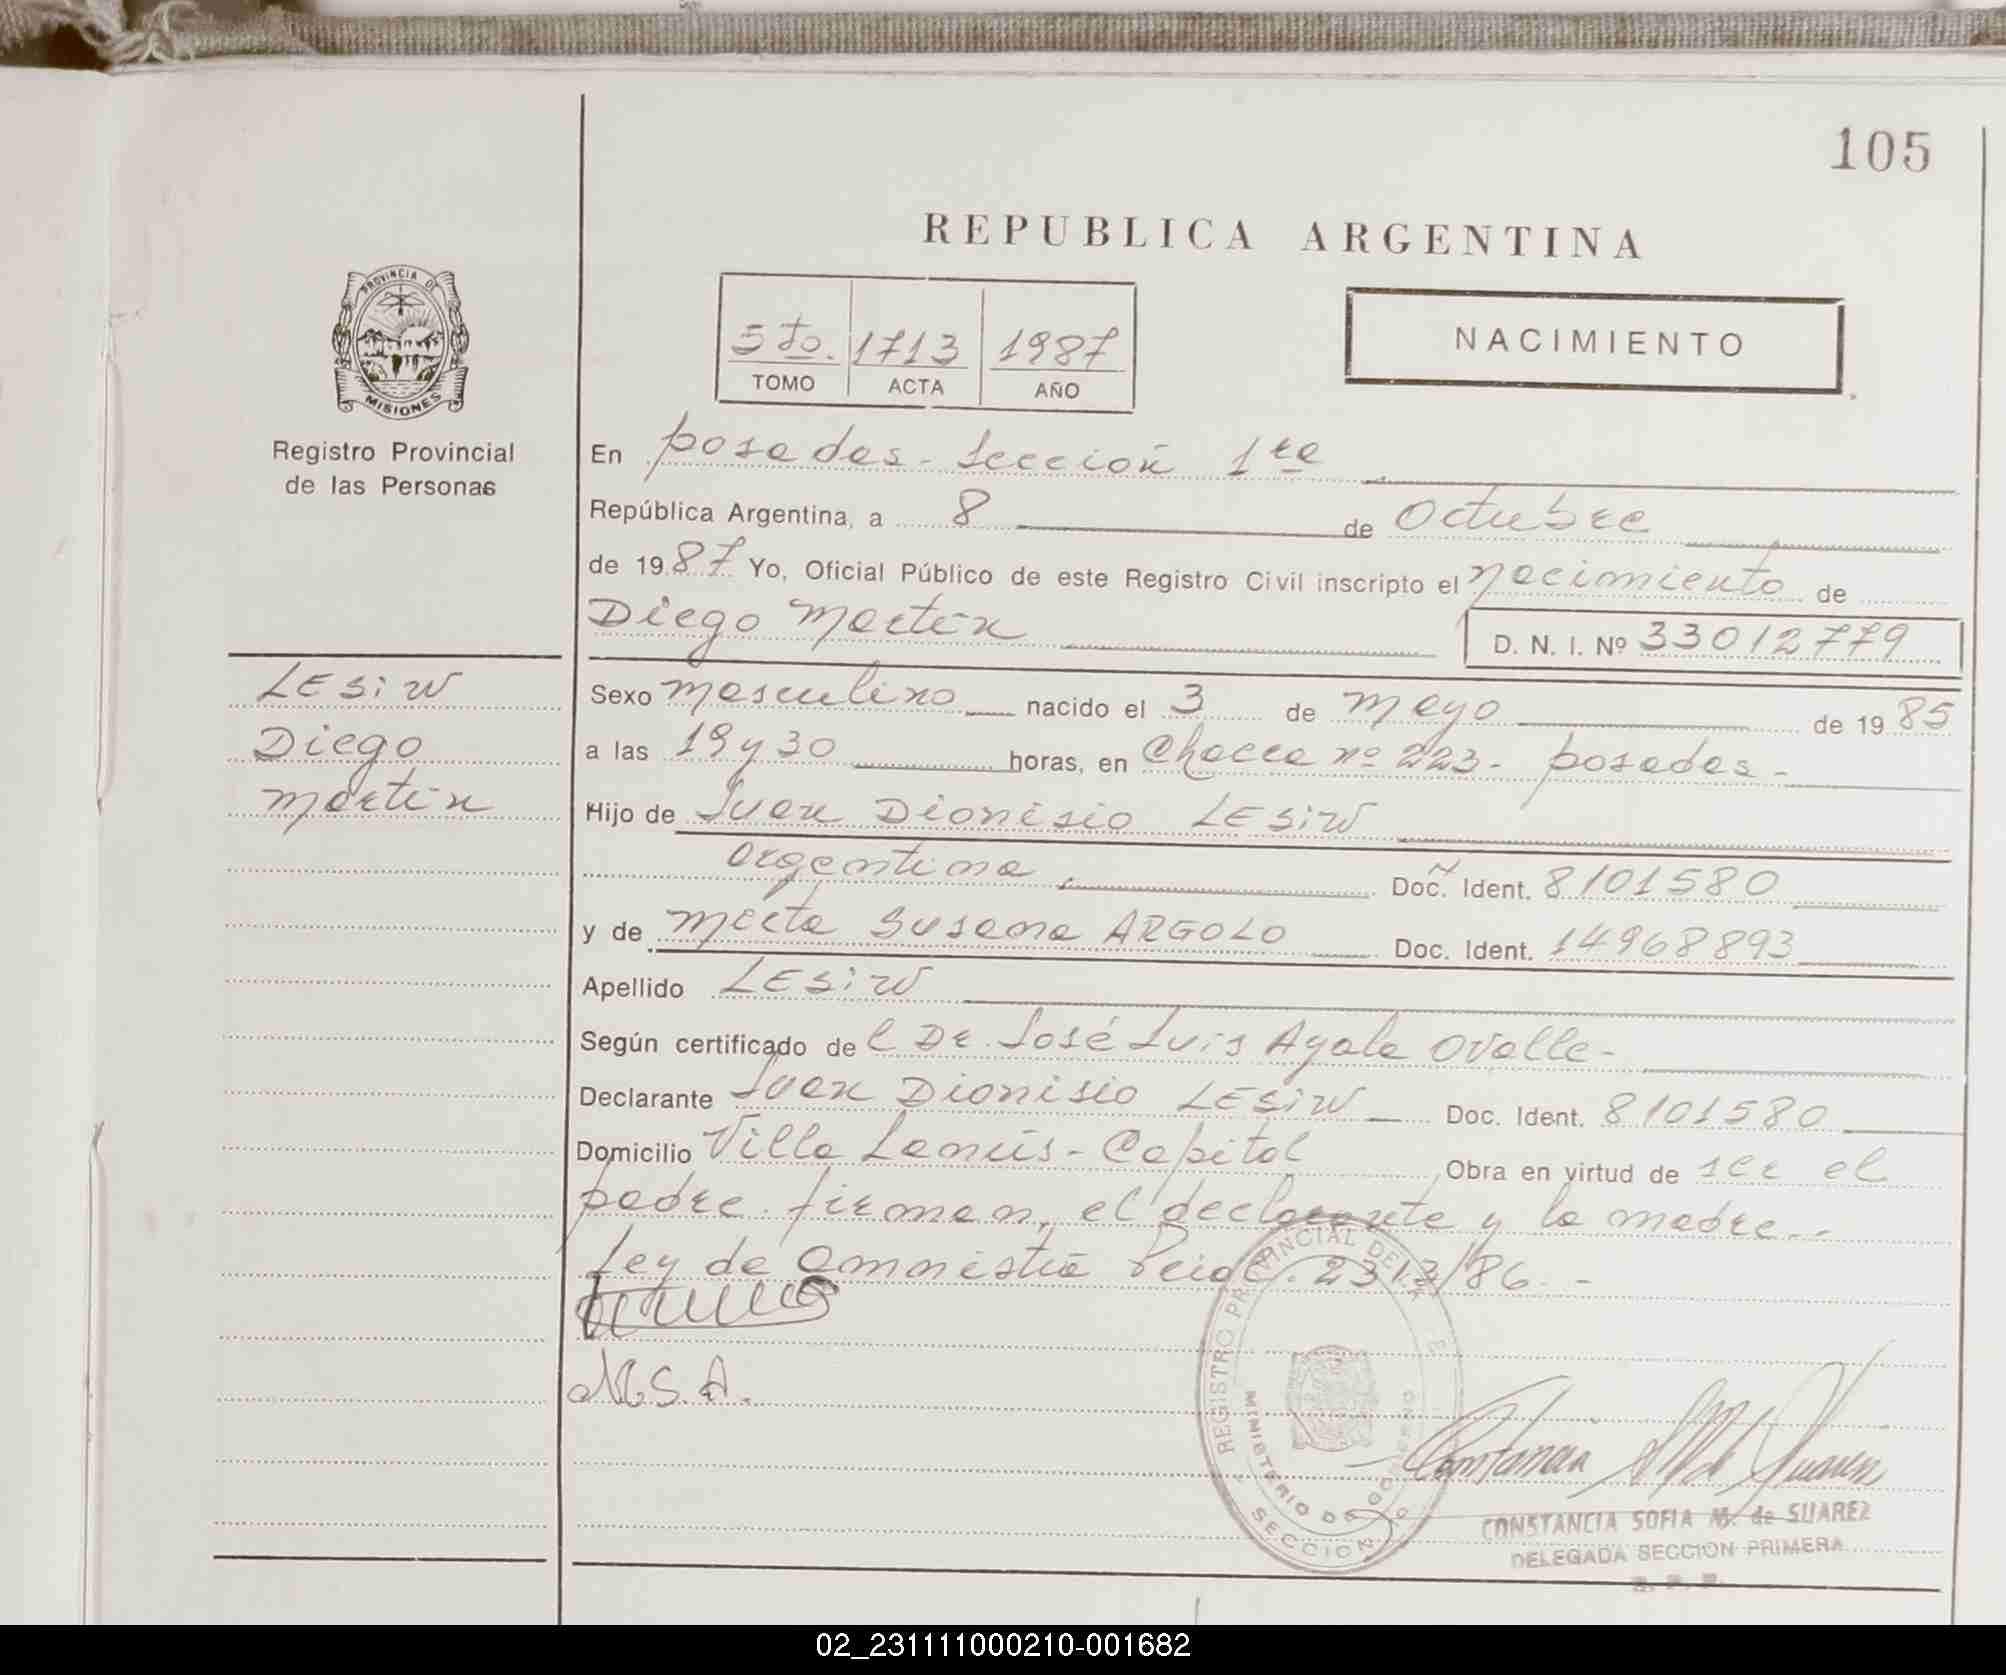 105
REPUBLICA ARGENTINA
PROVINCIA DE
MISIONES
Registro Provincial
de las Personas
5to. 1713 1987
TOMO ACTA AÑO
NACIMIENTO
En posadas - Sección 1ra
República Argentina, a 8 de Octubre
de 1987 Yo, Oficial Público de este Registro Civil inscripto el nacimiento de
Diego Martín D. N. I. Nº 33012779
LESiW
Diego
Martín
Sexo masculino nacido el 3 de mayo de 1985
a las 19 y 30 horas, en Chacra nº 223 - posadas -
Hijo de Juan Dionisio LESiW
argentina Doc. Ident. 8101580
y de Mirta Susana ARGOLO Doc. Ident. 14968893
Apellido LESiW
Según certificado del Dr. José Luis Ayala Ovalle -
Declarante Juan Dionisio LESiW Doc. Ident. 8101580
Domicilio Villa Lanús - Capital Obra en virtud de ser el
padre. firman, el declarante y la madre. -
Ley de amnistía 2313/86. -
M.S.A.
REGISTRO PROVINCIAL DE
MINISTERIO DE GOBIERNO
SECCION
CONSTANCIA SOFIA M. de SUAREZ
DELEGADA SECCION PRIMERA
02_231111000210-001682